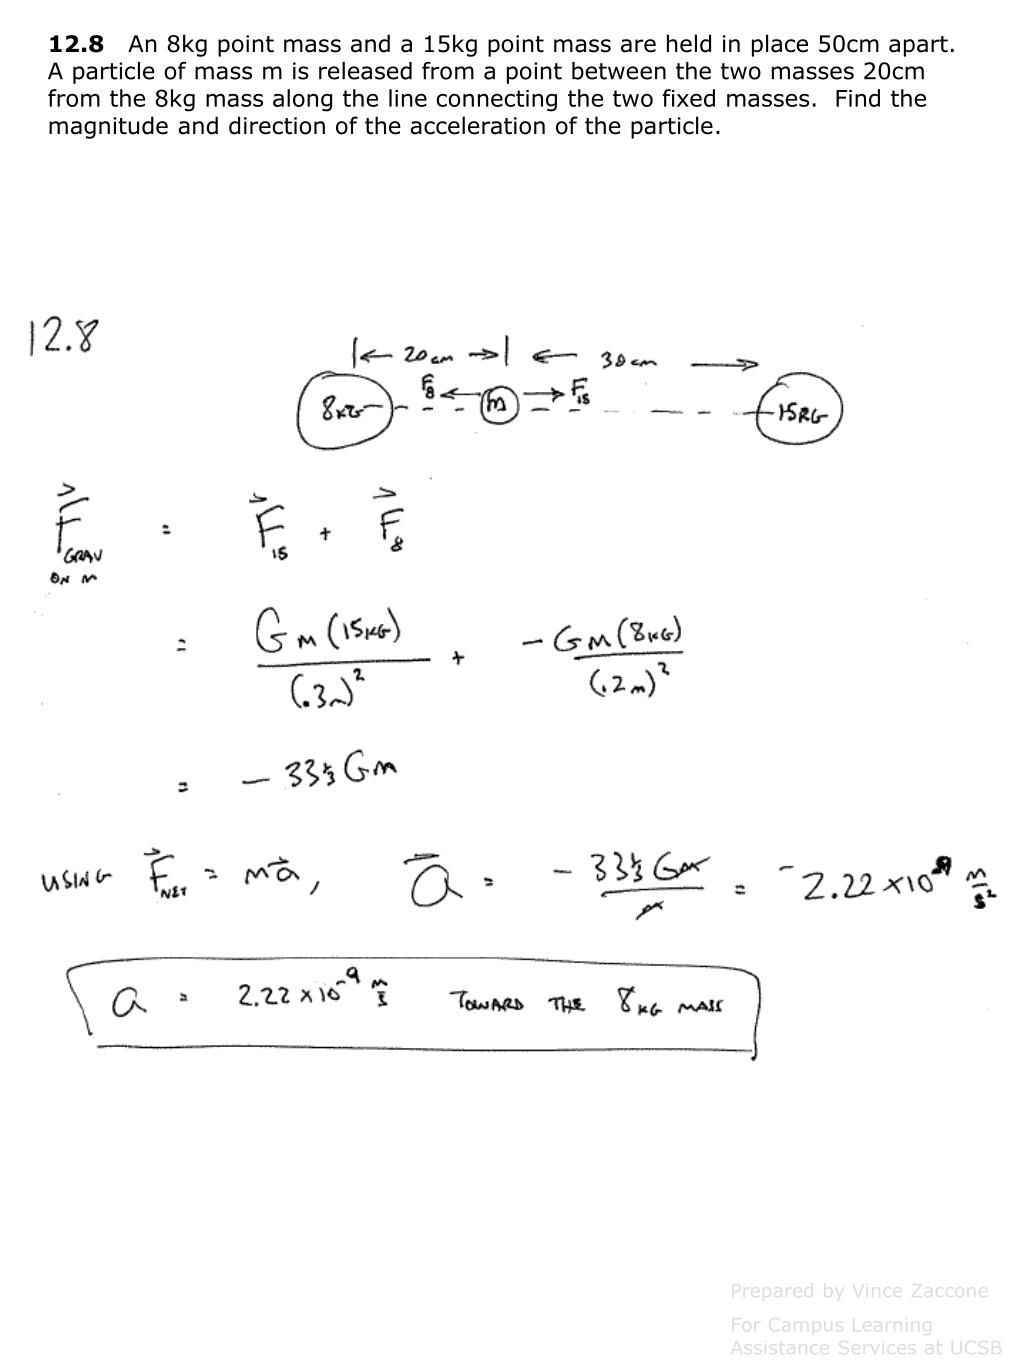 12.8 An 8kg point mass and a 15kg point mass are held in place 50cm apart.
A particle of mass m is released from a point between the two masses 20cm
from the 8kg mass along the line connecting the two fixed masses. Find the
magnitude and direction of the acceleration of the particle.
12.8
|← 20 cm →| ← 30 cm →
8KG F₈ ← m → F₁₅ 15KG
F⃗ GRAV ON M = F⃗₁₅ + F⃗₈
= GM(15KG)/(.3m)² + -GM(8KG)/(.2m)²
= - 33⅓ GM
USING F⃗NET = ma⃗, a⃗ = - 33⅓ GM/M = -2.22 ×10⁻⁹ m/s²
a = 2.22 × 10⁻⁹ m/s TOWARD THE 8KG MASS
Prepared by Vince Zaccone
For Campus Learning
Assistance Services at UCSB